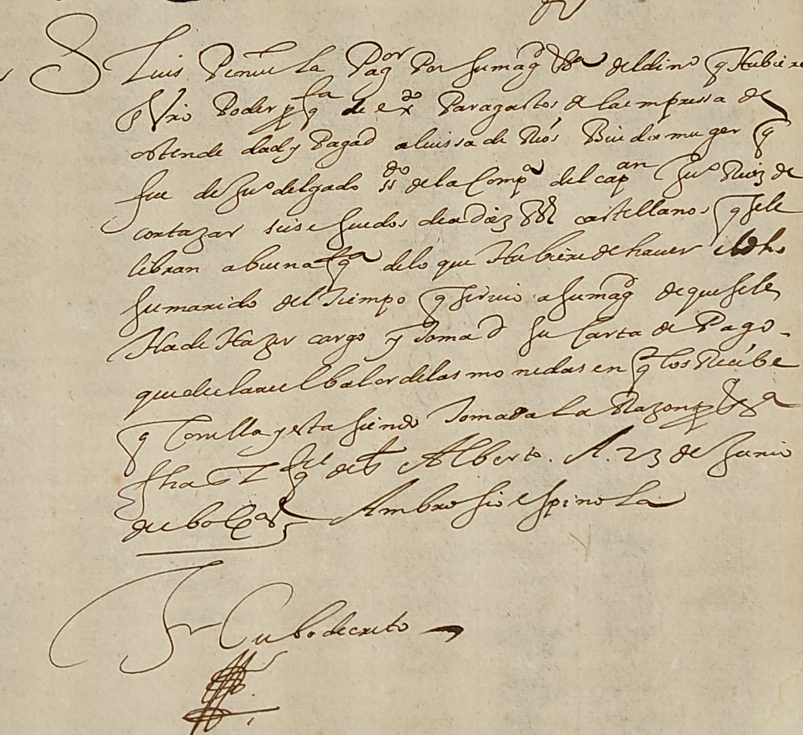 S Luis Penuela Pagor Por su magd del din° q Hubiere
Vro Poder pa q de exdo Para gastos de la empressa de
ostende dad y Pagad a luissa de Rios Biuda muger q
fue de Ju° delgado ssdo de la Compa del capan Ju° Ruiz de
cortazar seis escudos de a diez castellanos q se le
libran a buena qta de lo que Hubiere de hauer el dho
su marido del Tiempo q siruio a su magd de que se le
Ha de Hazer cargo y Tomad su Carta de Pago
que declare el balor de las monedas en q los Recibe
q con ella y esta siendo Tomada La Razon
fha del Alberto. A. 23 de Junio
Ambrosio espinola
decreto